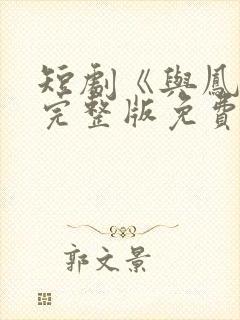 短劇《與鳳
完整版免費
郭文景